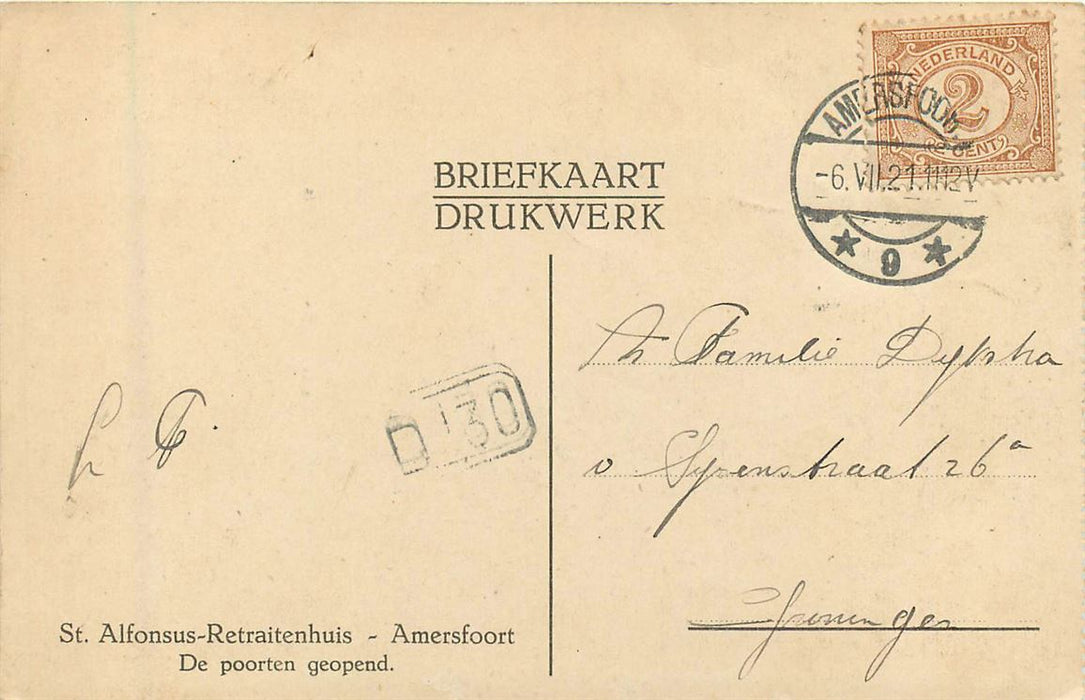 NEDERLAND
2
2 CENT
AMERSFOO
-6.VII.21.1112V
9
BRIEFKAART
DRUKWERK
Familie Dykstra
v Sypenstraat 26a
Groningen
D'30
St. Alfonsus-Retraitenhuis - Amersfoort
De poorten geopend.